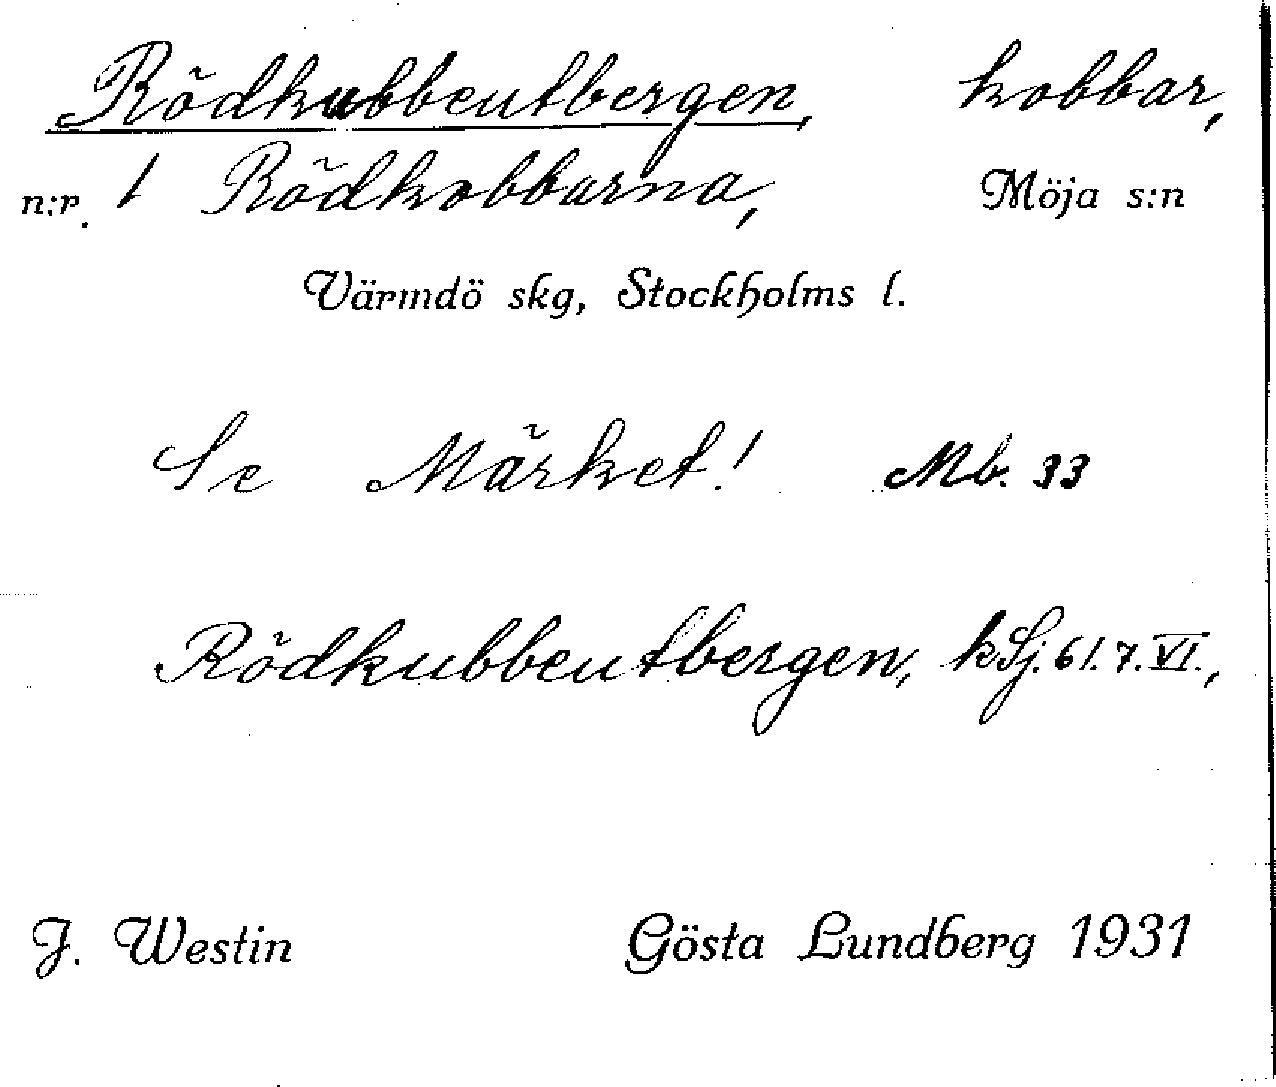 Rödkubbeutbergen, kobbar,
n:r. 1 Rödkobbarna, Möja s:n
Värmdö skg, Stockholms l.
Se Märket! Mb. 33
Rödkubbeutbergen, k Sj. 61. 7. VI.,
J. Westin Gösta Lundberg 1931